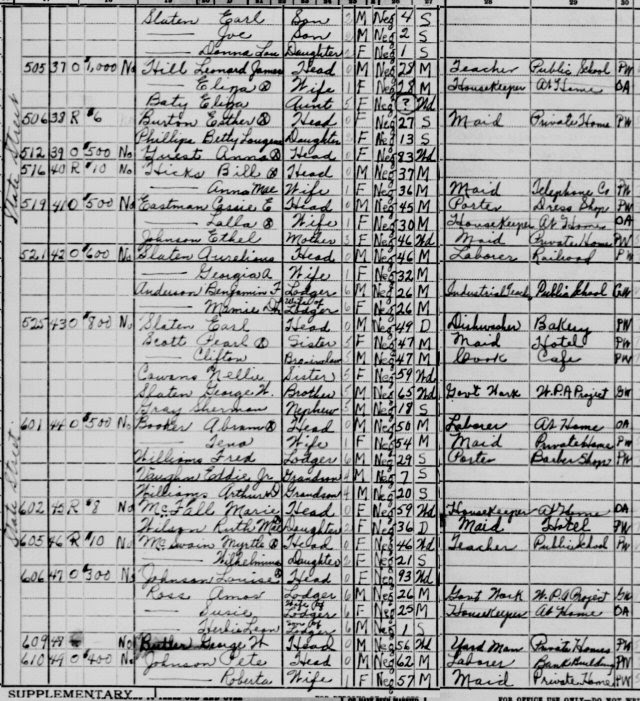 State Street
Slaten Earl Son M Neg 4 S
— Joe Son M Neg 2 S
— Donna Lou Daughter F Neg 1 S
505 37 O 1,000 No Hill Leonard James Head 0 M Neg 28 M Teacher Public School PW
— Elena Wife 1 F Neg 28 M Housekeeper At Home OA
Baty Elena Aunt 5 F Neg Wd
506 38 R $6 Burton Esther Head 0 F Neg 27 S Maid Private Home PW
Phillips Betty Daughter F Neg 13 S
512 39 O 500 No Guest Anna Head 0 F Neg 83 Wd
516 40 R $10 No Hicks Bill Head 0 M Neg 37 M
— Anna Mae Wife 1 F Neg 36 M Maid Telephone Co PW
519 41 O 500 No Eastman Cassie E Head 0 M Neg 45 M Porter Dress Shop PW
— Lalla Wife 1 F Neg 30 M Housekeeper At Home OA
Johnson Ethel Mother 3 F Neg 46 Wd Maid Private Home PW
521 42 O 600 Slaten Aurelious Head 0 M Neg 46 M Laborer Railroad PW
— Georgia A. Wife 1 F Neg 32 M
Anderson Benjamin F. Lodger 6 M Neg 26 M Industrial Teach Public School GW
— Mamie D. wife of Lodger 6 F Neg 26 M
525 43 O 800 No Slaten Earl Head 0 M Neg 49 D Dishwasher Bakery PW
Scott Pearl Sister 5 F Neg 47 M Maid Hotel PW
— Clifton Bro-in-law 5 M Neg 47 M Cook Cafe PW
Cowans Nellie Sister 5 F Neg 59 Wd
Slaten George W. Brother 5 M Neg 65 Wd Govt Work W.P.A Project GW
Gray Sherman Nephew 5 M Neg 18 S
State Street
601 44 O 500 No Booker Abram Head 0 M Neg 50 M Laborer At Home OA
— Tena Wife 1 F Neg 54 M Maid Private Home PW
Williams Fred Lodger 6 M Neg 29 S Porter Barber Shop PW
Vaughn Eddie Jr. Grandson 4 M Neg 7 S
Williams Arthur D. Grandson 4 M Neg 20 S
602 45 R $8 No McFall Marie Head 0 F Neg 59 Wd Housekeeper At Home OA
Wilson Ruth Mae Daughter 2 F Neg 36 D Maid Hotel PW
605 46 R $10 No McSwain Myrtle Head 0 F Neg 46 Wd Teacher Public School PW
— Wilhelmina Daughter 2 F Neg 21 S
606 47 O 300 No Johnson Louise Head 0 F Neg 93 Wd
Ross Amos Lodger 6 M Neg 26 M Govt Work W.P.A Project GW
— Susie Wife of Lodger 6 F Neg 25 M Housekeeper At Home OA
— Herbie Leon Son of Lodger 6 M Neg 1 S
609 48 No Butler George W Head 0 M Neg 56 Wd Yard Man Private Homes PW
610 49 O 400 No Johnson Pete Head 0 M Neg 62 M Laborer Bank Building PW
— Roberta Wife 1 F Neg 57 M Maid Private Home PW
SUPPLEMENTARY
FOR OFFICE USE ONLY—DO NOT